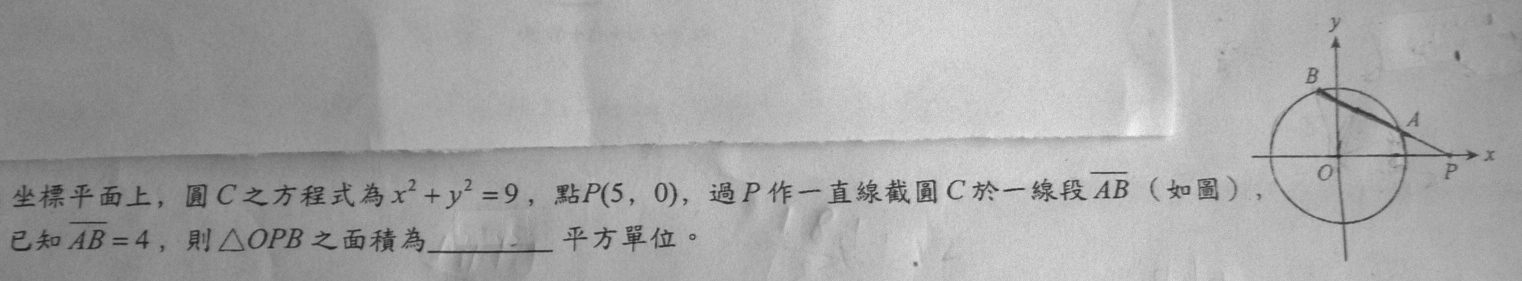 y
B
A
O
P
x
坐標平面上，圓C之方程式為x²+y²=9，點P(5，0)，過P作一直線截圓C於一線段\overline{AB}（如圖），
已知\overline{AB}=4，則△OPB之面積為________平方單位。